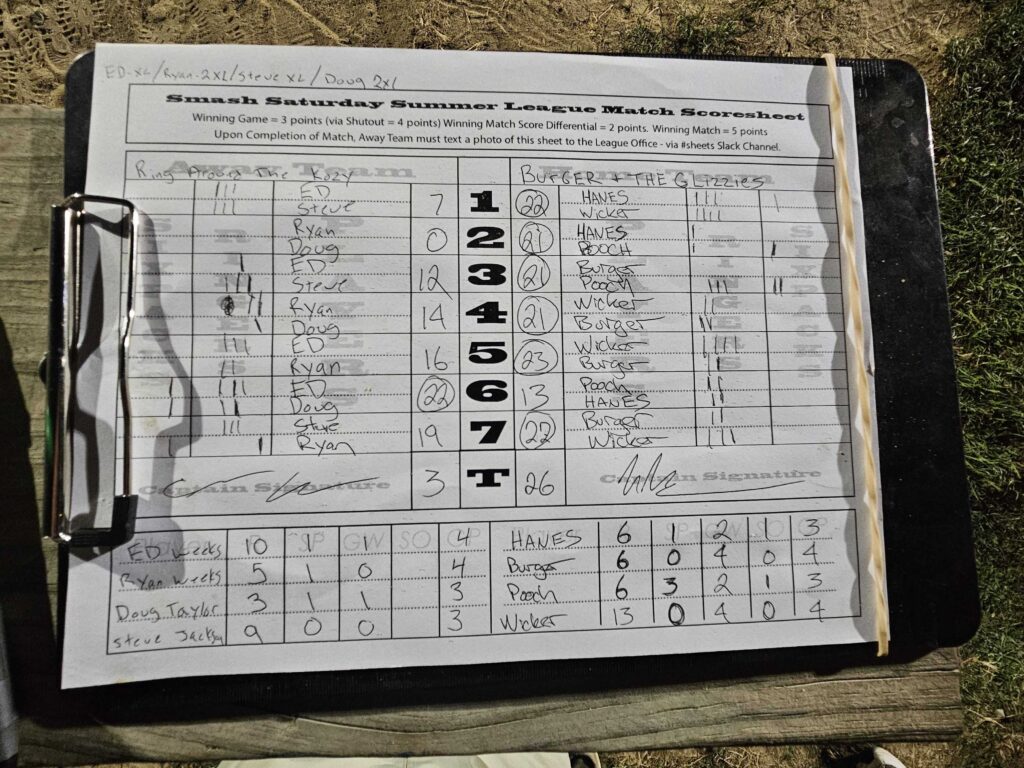 ED-XL/Ryan-2XL/Steve XL/Doug 2XL
Smash Saturday Summer League Match Scoresheet
Winning Game = 3 points (via Shutout = 4 points) Winning Match Score Differential = 2 points. Winning Match = 5 points
Upon Completion of Match, Away Team must text a photo of this sheet to the League Office - via #sheets Slack Channel.
Away Team Home Team
Ring Around The Kozy BURGER + THE GLIZZIES
ED 7 1 22 HANES
Steve Wicker
Ryan 0 2 21 HANES
Doug POOCH
ED 12 3 21 Burger
Steve Pooch
Ryan 14 4 21 Wicker
Doug Burger
ED 16 5 23 Wicker
Ryan Burger
ED 22 6 13 Pooch
Doug HANES
Steve 19 7 22 Burger
Ryan Wicker
Captain Signature 3 T 26 Captain Signature
SP GW SO GP SP GW SO GP
ED Weeks 10 1 1 4 HANES 6 1 2 1 3
Ryan Weeks 5 1 0 4 Burger 6 0 4 0 4
Doug Taylor 3 1 1 3 Pooch 6 3 2 1 3
Steve Jackson 9 0 0 3 Wicker 13 0 4 0 4